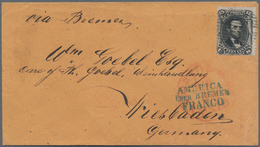 via Bremen
Wm Goebel Esq.
care of Th. Goebel, Weinhandlung
AMERICA
ÜBER BREMEN
FRANCO
Wiesbaden
Germany.